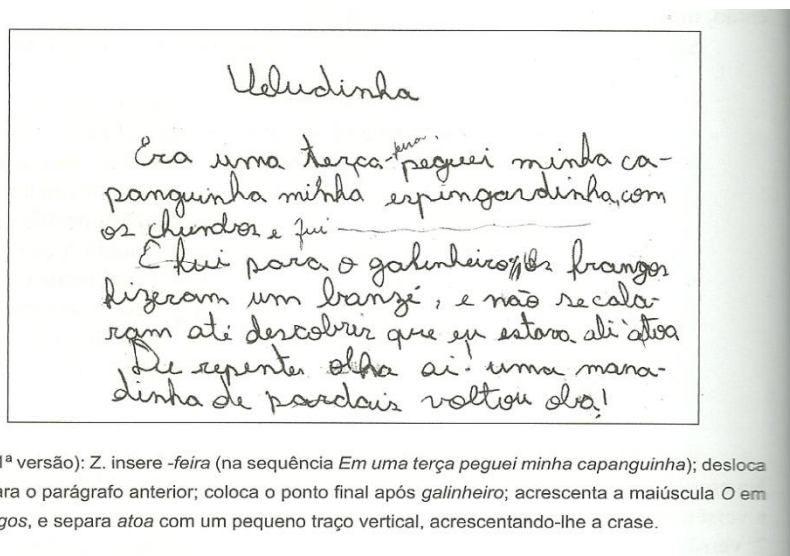 Veludinha
Era uma terça-feira peguei minha ca-
panguinha minha espingardinha, com
os chumbos e fui
E fui para o galinheiro. Os frangos
fizeram um banzé, e não secala-
ram até descobrir que eu estava ali à toa
De repente olha ai! uma mana-
dinha de pardais voltou oba!
1ª versão): Z. insere -feira (na sequência Em uma terça peguei minha capanguinha); desloca
ara o parágrafo anterior; coloca o ponto final após galinheiro; acrescenta a maiúscula O em
gos, e separa atoa com um pequeno traço vertical, acrescentando-lhe a crase.